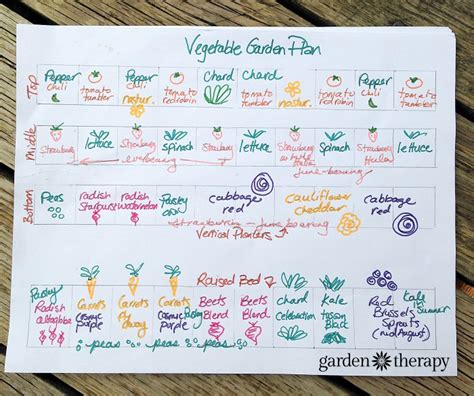 Vegetable Garden Plan
Top
Pepper chili
tomato tumbler
Pepper chili nastur.
tomato redrobin
Chard
Chard tomato tumbler
nastur.
tomato redrobin
Pepper chili
tomato tumbler
Middle
Strawberry
lettuce
Strawberry
spinach
Strawberry
lettuce
Strawberry
spinach
Strawberry
lettuce
everbearing
June-bearing
Bottom
Peas
radish Starburst
radish watermelon
Parsley
cabbage red
cauliflower cheddar
cabbage red
strawberries - June bearing
Vertical Planters
Raised Bed
Parsley Radish
Carrots Cosmic purple
Carrots Fly away
Carrots Cosmic purple
Parsley
Beets Blend
Beets Blend
Chard Celebration
Kale Tuscan Black
Red Brussels Sprouts (mid August)
Kale Summer
peas peas peas
garden therapy